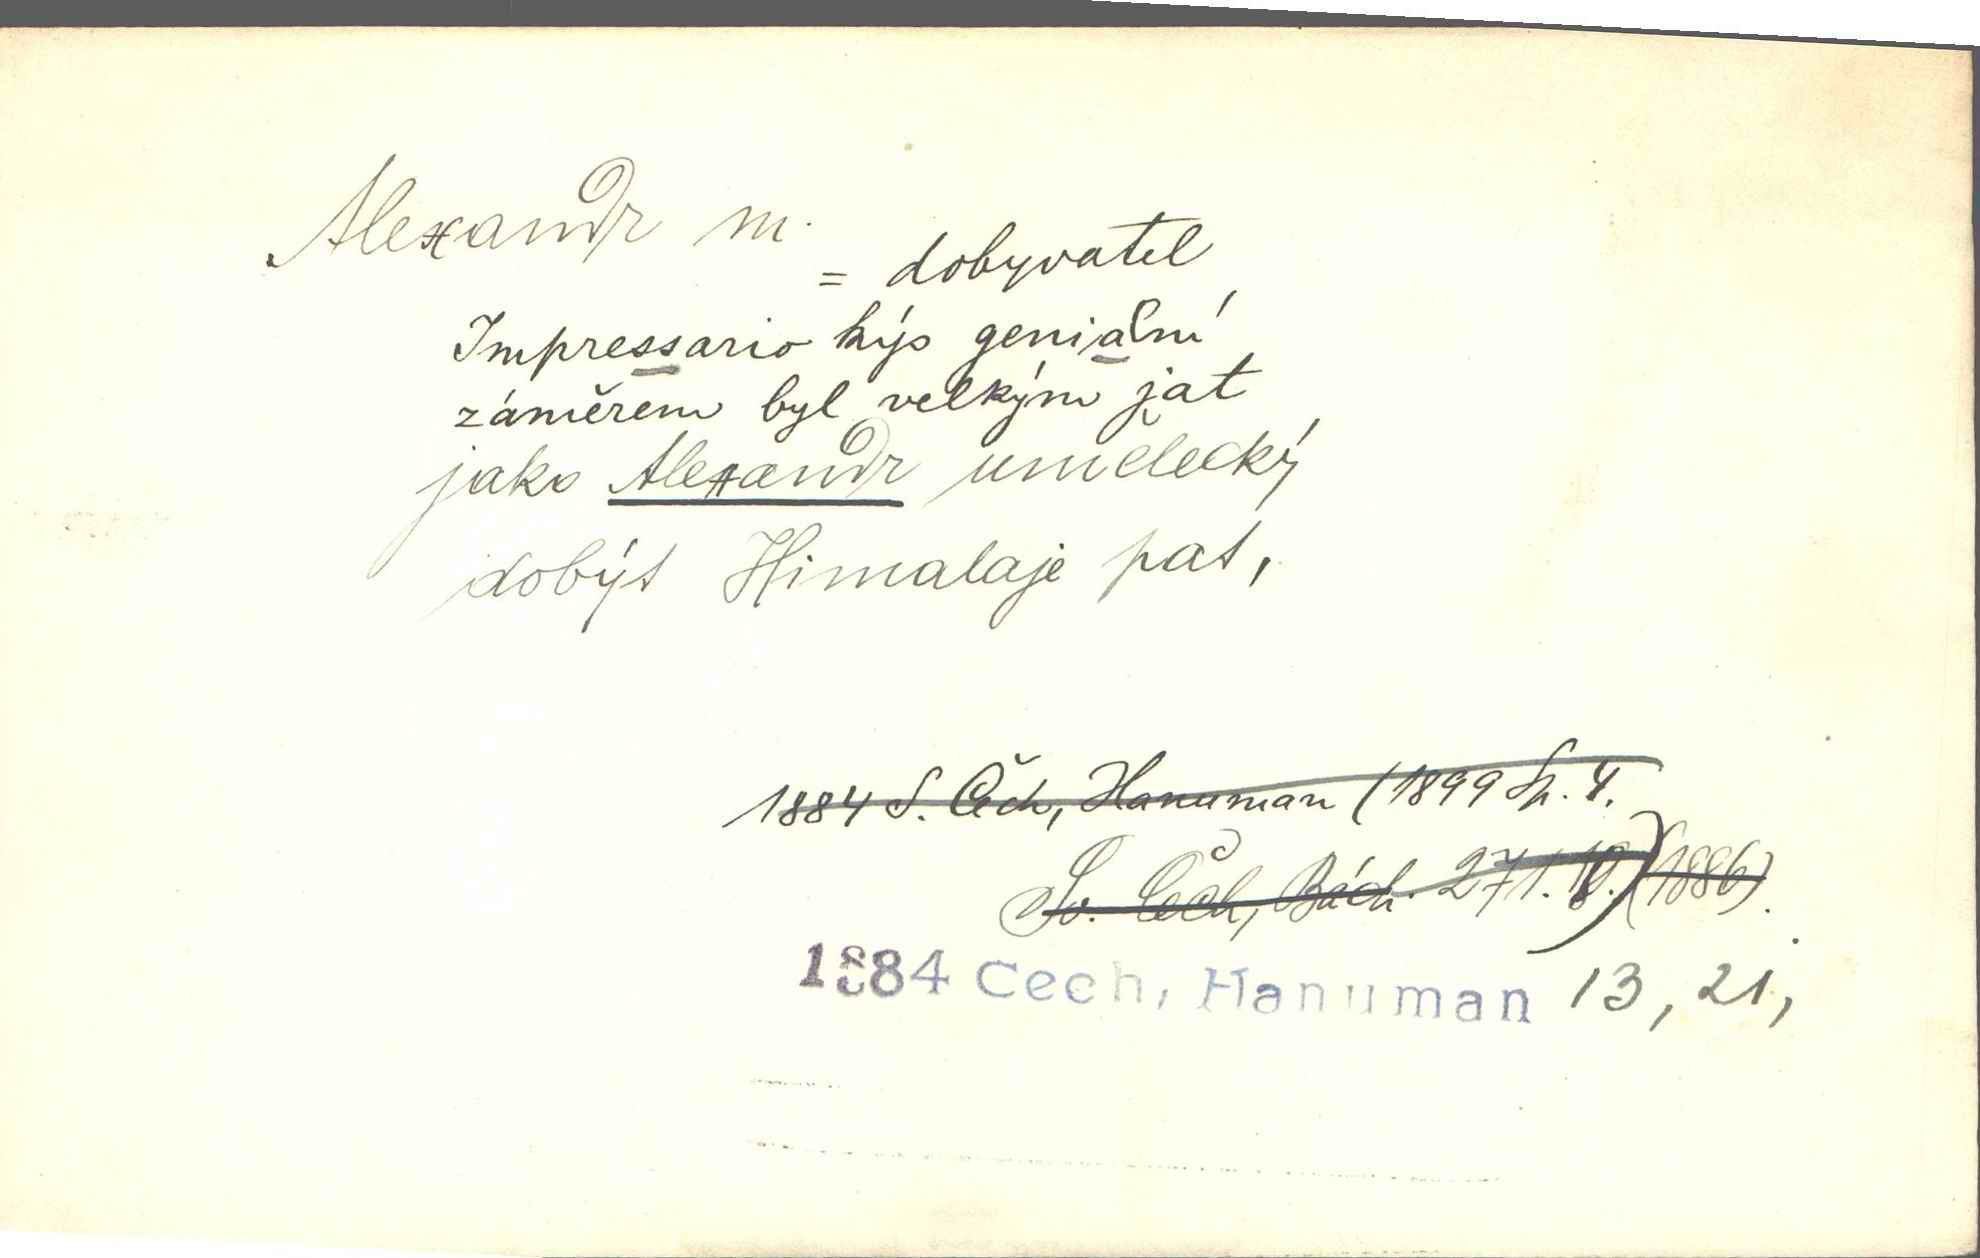 Alexandr m.
= dobyvatel
Impressario kýs genialní
záměrem byl velkým jat
jako Alexandr umělecký
dobýt Himalaje pat,
1884 S. Čech, Hanuman (1899 Sp. 4.
Sv. Čech, Bách. 271. 18.) (1886).
1884 Cech, Hanuman 13, 21,